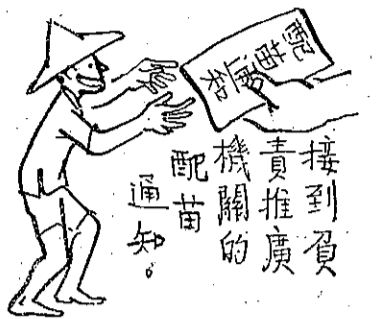 配苗通知
接到負
責推廣
機關的
配苗
通知。